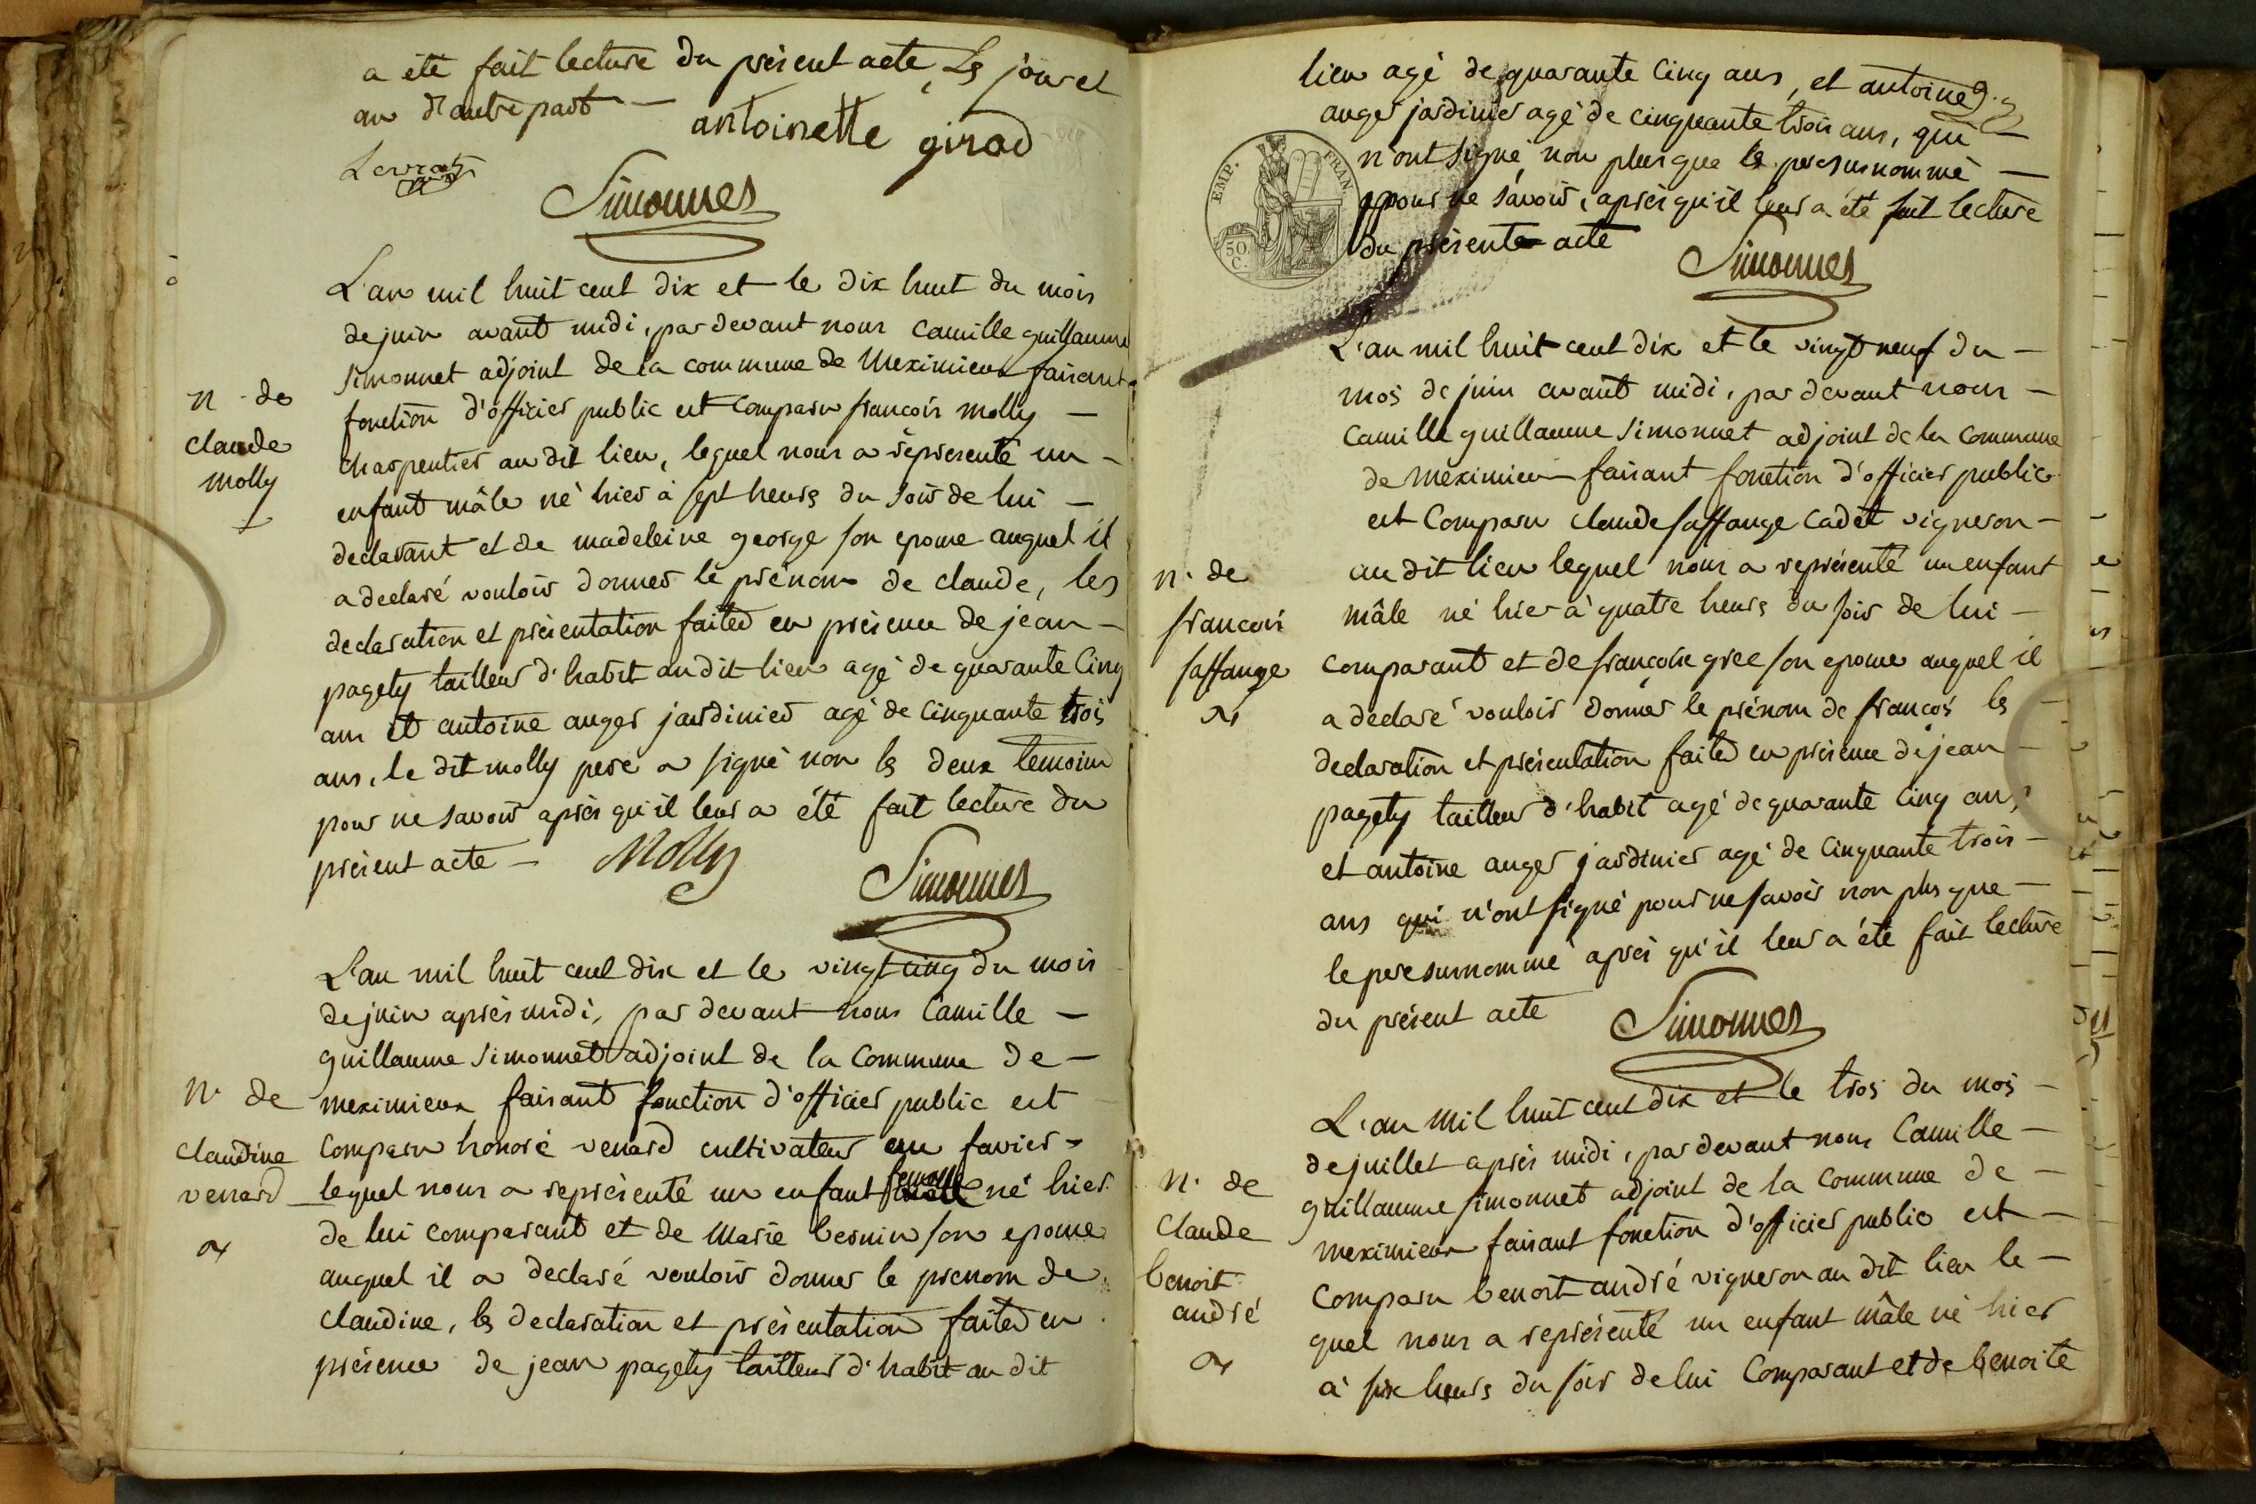 a été fait lecture du présent acte, Les jour et
an d'autre part —
antoinette girod
Levrat
Simonnet
L'an mil huit cent dix et le dix huit du mois
de juin avant midi, par devant nous Camille guillaume
simonnet adjoint de la commune de Meximieux faisant
fonction d'officier public est comparu françois molly —
charpentier au dit lieu, lequel nous a représenté un -
enfant mâle né hier à sept heures du soir de lui —
declarant et de madeleine george son epouse auquel il
a declaré vouloir donner le prénom de claude, les
declaration et présentation faites en présence de jean —
pagety tailleur d'habit au dit lieu agé de quarante cinq
ans et antoine auger jardinier agé de cinquante trois
ans, le dit molly pere a signé non les deux temoins
pour ne savoir après qu'il leur a été fait lecture du
présent acte —
Molly
Simonnet
n. de
claude
molly
L'an mil huit cent dix et le vingt cinq du mois
de juin après midi, par devant nous Camille —
guillaume simonnet adjoint de la Commune de —
meximieux faisant fonction d'officier public est
comparu honoré venard cultivateur au favier
lequel nous a représenté un enfant femelle né hier
de lui comparant et de Marie bernin son epouse
auquel il a declaré vouloir donner le prenom de
claudine, les declaration et présentation faites en
présence de jean pagety tailleur d'habit au dit
n. de
claudine
venard
lieu agé de quarante cinq ans, et antoine
auger jardinier agé de cinquante trois ans, qui —
n'ont signé non plus que le pere surnommé —
pour ne savoir, après qu'il leur a été fait lecture
du présente acte
Simonnet
EMP. FRAN.
50 C.
L'an mil huit cent dix et le vingt neuf du —
mois de juin avant midi, par devant nous —
Camille guillaume simonnet adjoint de la commune
de meximieux faisant fonction d'officier public
est Comparu claude saffange cadet vigneron —
au dit lieu lequel nous a représenté un enfant
mâle né hier à quatre heures du soir de lui —
comparant et de françoise gree son epouse auquel il
a declaré vouloir donner le prénom de françois les
declaration et présentation faites en présence de jean —
pagety tailleur d'habit agé de quarante cinq ans,
et antoine auger jardinier agé de cinquante trois —
ans qui n'ont signé pour ne savoir non plus que —
le pere surnommé après qu'il leur a été fait lecture
du présent acte
Simonnet
n. de
françois
saffange
L'an mil huit cent dix et le trois du mois —
de juillet après midi, par devant nous Camille —
guillaume simonnet adjoint de la commune de —
meximieux faisant fonction d'officier public est —
comparu benoit andré vigneron au dit lieu le —
quel nous a représenté un enfant mâle né hier
à six heures du soir de lui Comparant et de benoite
n. de
claude
benoit
andré